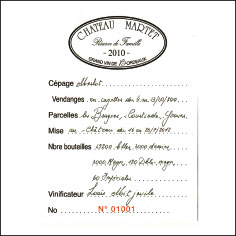 CHATEAU MARTET
Réserve de Famille
- 2010 -
GRAND VIN DE BORDEAUX
Cépage Merlot
Vendanges en cagettes du 4 au 13/10/2010
Parcelles les Bergeries,
Mise au Château du 16 au 20/7/2012
Nbre bouteilles 13200 Blles, 1000 demies,
1000 Magn, 120 Dbles magn,
60 Impériales
Vinificateur Louis Mitjavile
No N° 01001